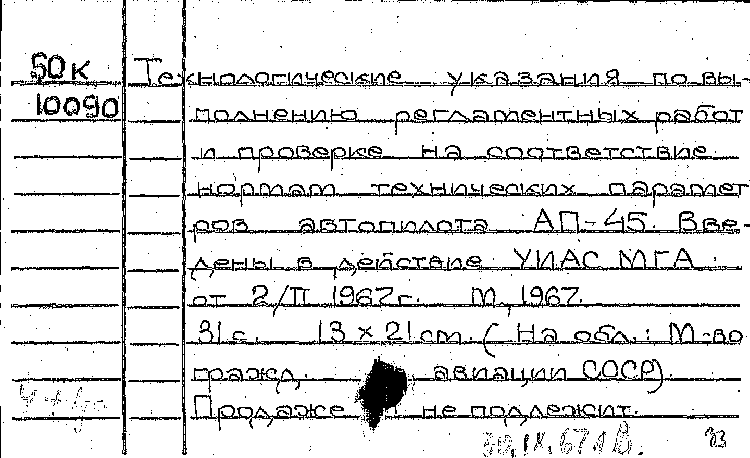 50к Технологические указания по вы-
10090 полнению регламентных работ
и проверке на соответствие
нормам технических парамет
ров автопилота АП-45. Вве-
дены в действие УИАС МГА
от 2/II 1967г. М., 1967.
31 с. 13 × 21 см. (На обл.: М-во
гражд. авиации СССР)
Продаже не подлежит.
30.IX.67